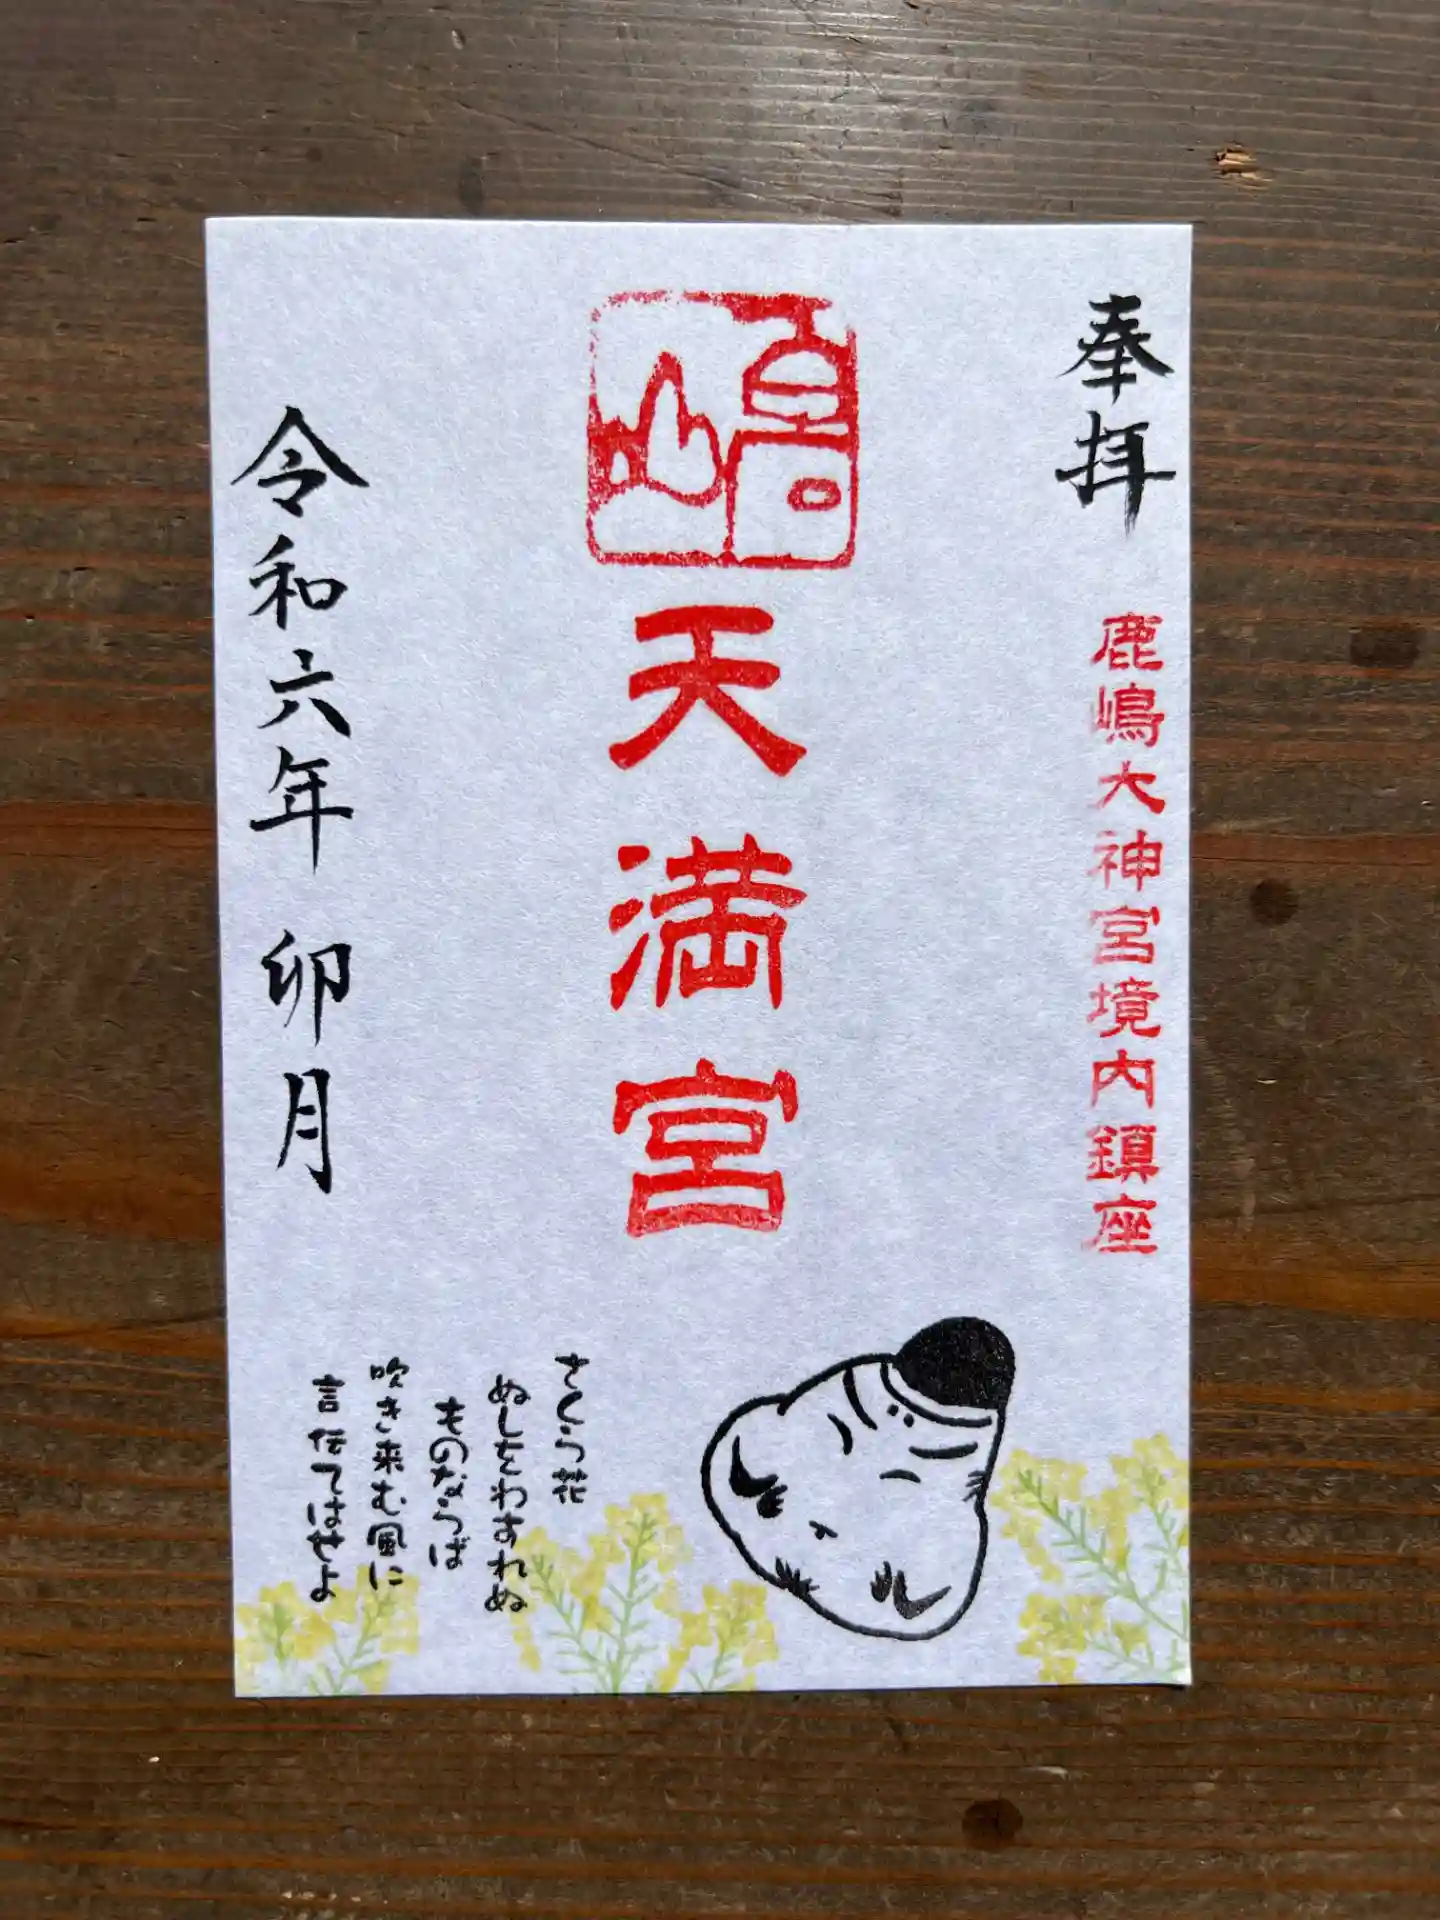 奉拝
鹿嶋大神宮境内鎮座
天満宮
さくら花
ぬしをわすれぬ
ものならば
吹き来む風に
言伝てはせよ
令和六年 卯月